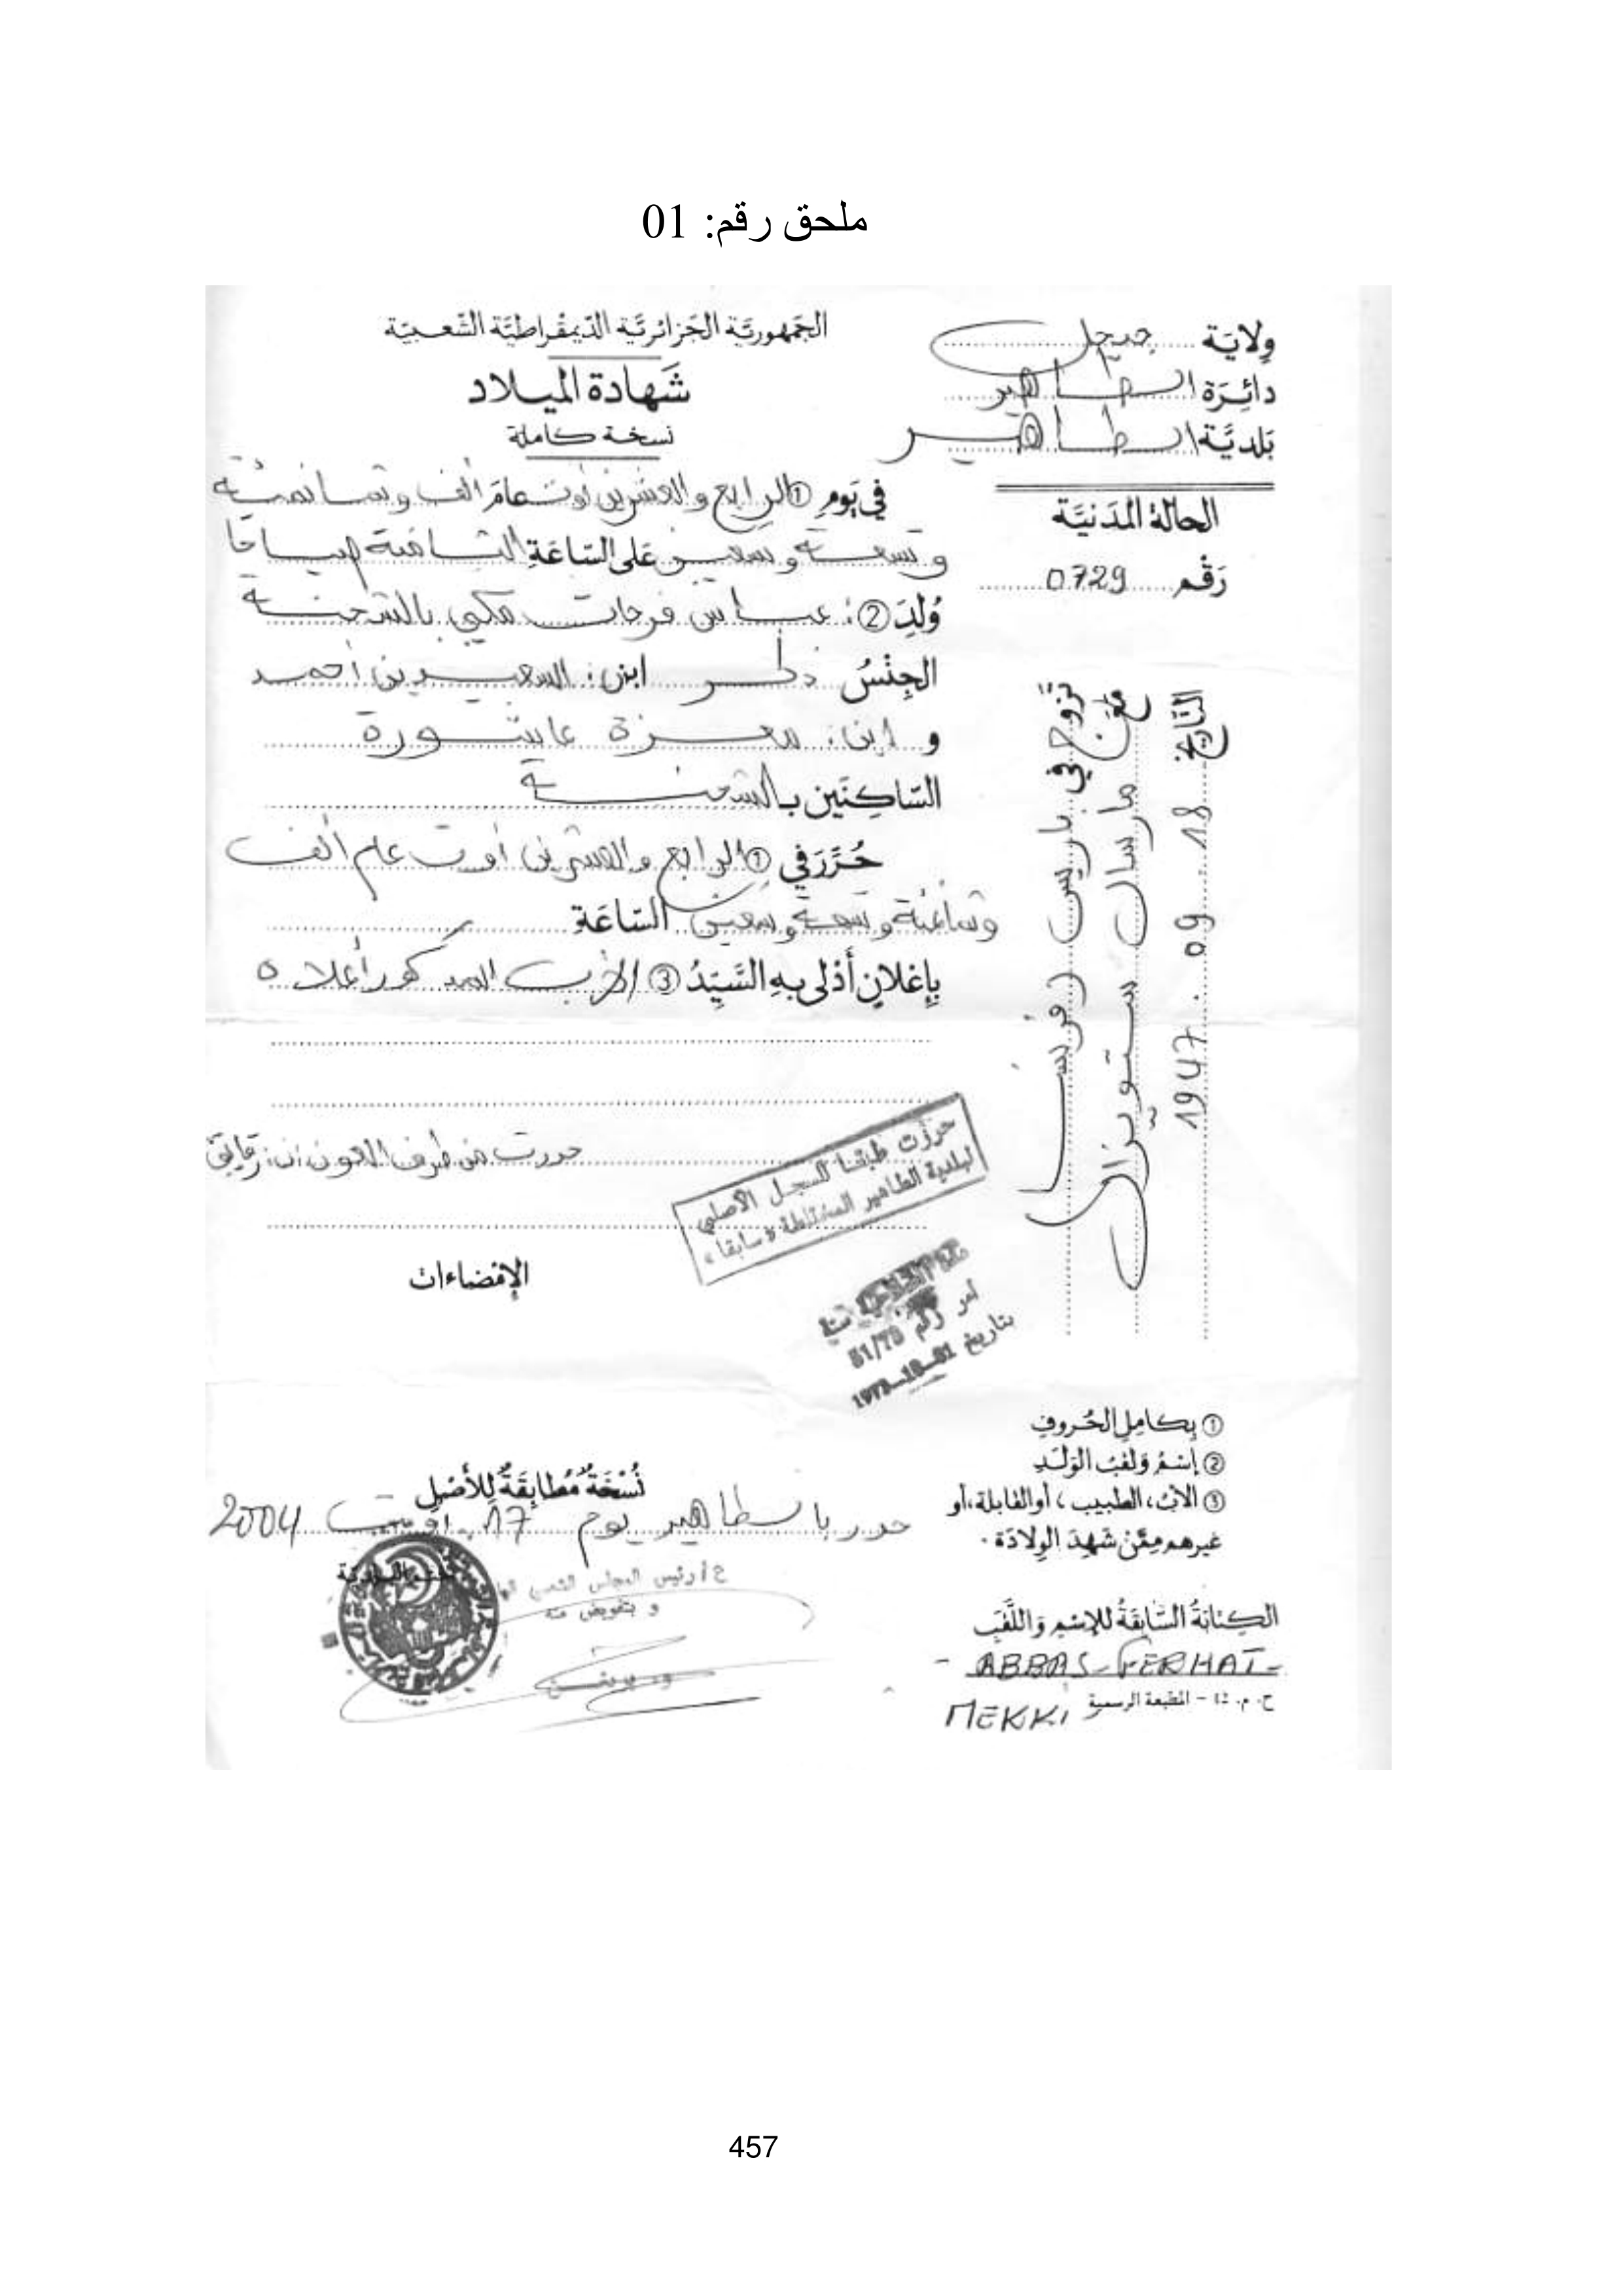 ملحق رقم: 01
الجمهورية الجزائرية الديمقراطية الشعبية
شهادة الميلاد
نسخة كاملة
ولاية جيجل
دائرة الطاهير
بلدية الطاهير
الحالة المدنية
رقم 0729
في يوم ① الرابع والعشرين أوت عام ألف وثمانمئة
وتسعة وتسعين على الساعة الثامنة صباحا
وُلِدَ ②: عباس فرحات مكي بالشحنة
الجنس ذكر ابن: السعيد بن أحمد
و ابن: معزة عاشورة
الساكنين بالشحنة
حُرِّرَ في ① الرابع والعشرين أوت عام ألف
وثمانمئة وتسعة وتسعين الساعة
بإعلان أدلى به السَّيِّدُ ③ الأب المذكور أعلاه
حررت من طرف العون
تزوج في باريس (فرنسا)
مع مارسال ستويزال
التاريخ 18 09 1947
حررت طبقا للسجل الأصلي
لبلدية الطاهير المختلطة «سابقا»
أمر رقم
بتاريخ
الإمضاءات
① بكامل الحروف
② إسم ولقب الولد
③ الأب، الطبيب، أو القابلة، أو
غيرهم ممّن شهد الولادة.
نُسْخَةٌ مُطابِقَةٌ لِلأَصْلِ
حرر بالطاهير يوم 17 أوت 2004
ع/رئيس المجلس الشعبي
و بتفويض منه
الكتابة السّابقة للإسم واللّقب
- ABBAS - FERHAT -
MEKKI
المطبعة الرسمية
457